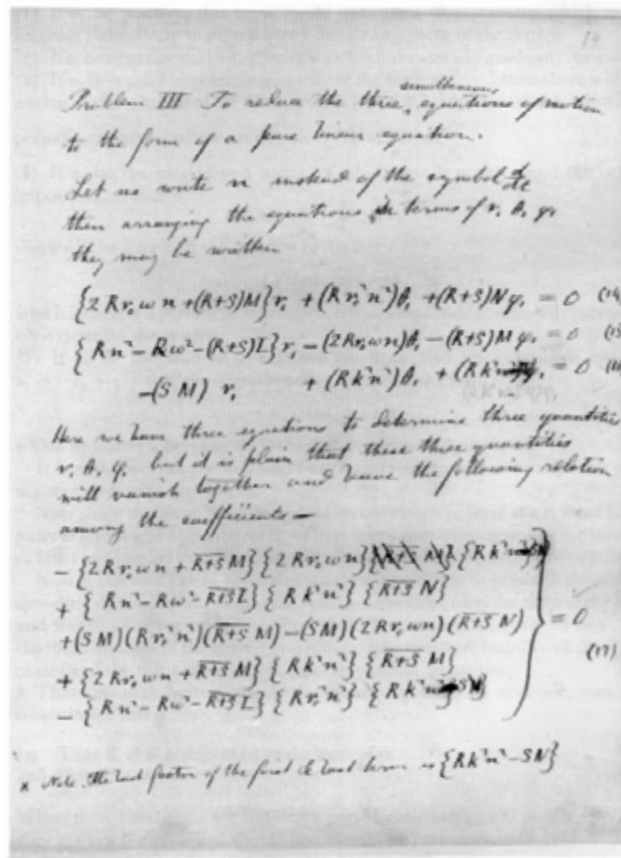 19
Problem III To reduce the three simultaneous equations of motion
to the form of a pure linear equation.
Let us write n instead of the symbol d/dt
then arranging the equations in terms of r₁ θ₁ φ₁
they may be written
{2Rr₀ωn+(R+S)M}r₁ + (Rr₀²n²)θ₁ + (R+S)Nφ₁ = 0 (14)
{Rn²-Rω²-(R+S)L}r₁ - (2Rr₀ωn)θ₁ - (R+S)Mφ₁ = 0 (15)
-(SM) r₁ + (Rk²n²)θ₁ + (Rk²n² φ₁ = 0 (16)
Here we have three equations to determine three quantities
r₁ θ₁ φ₁ but it is plain that these three quantities
will vanish together and leave the following relation
among the coefficients—
- {2Rr₀ωn + R+S M}{2Rr₀ωn} {Rk²n²
+ {Rn²-Rω²-R+S L}{Rk²n²}{R+S N}
+(SM)(Rr₀²n²)(R+S M)-(SM)(2Rr₀ωn)(R+S N)
+ {2Rr₀ωn+R+S M}{Rk²n²}{R+S M}
- {Rn²-Rω²-R+S L}{Rr₀²n²}{Rk²n²
} = 0
(17)
x Note. The last factor of the first & last term is {Rk²n²-SN}